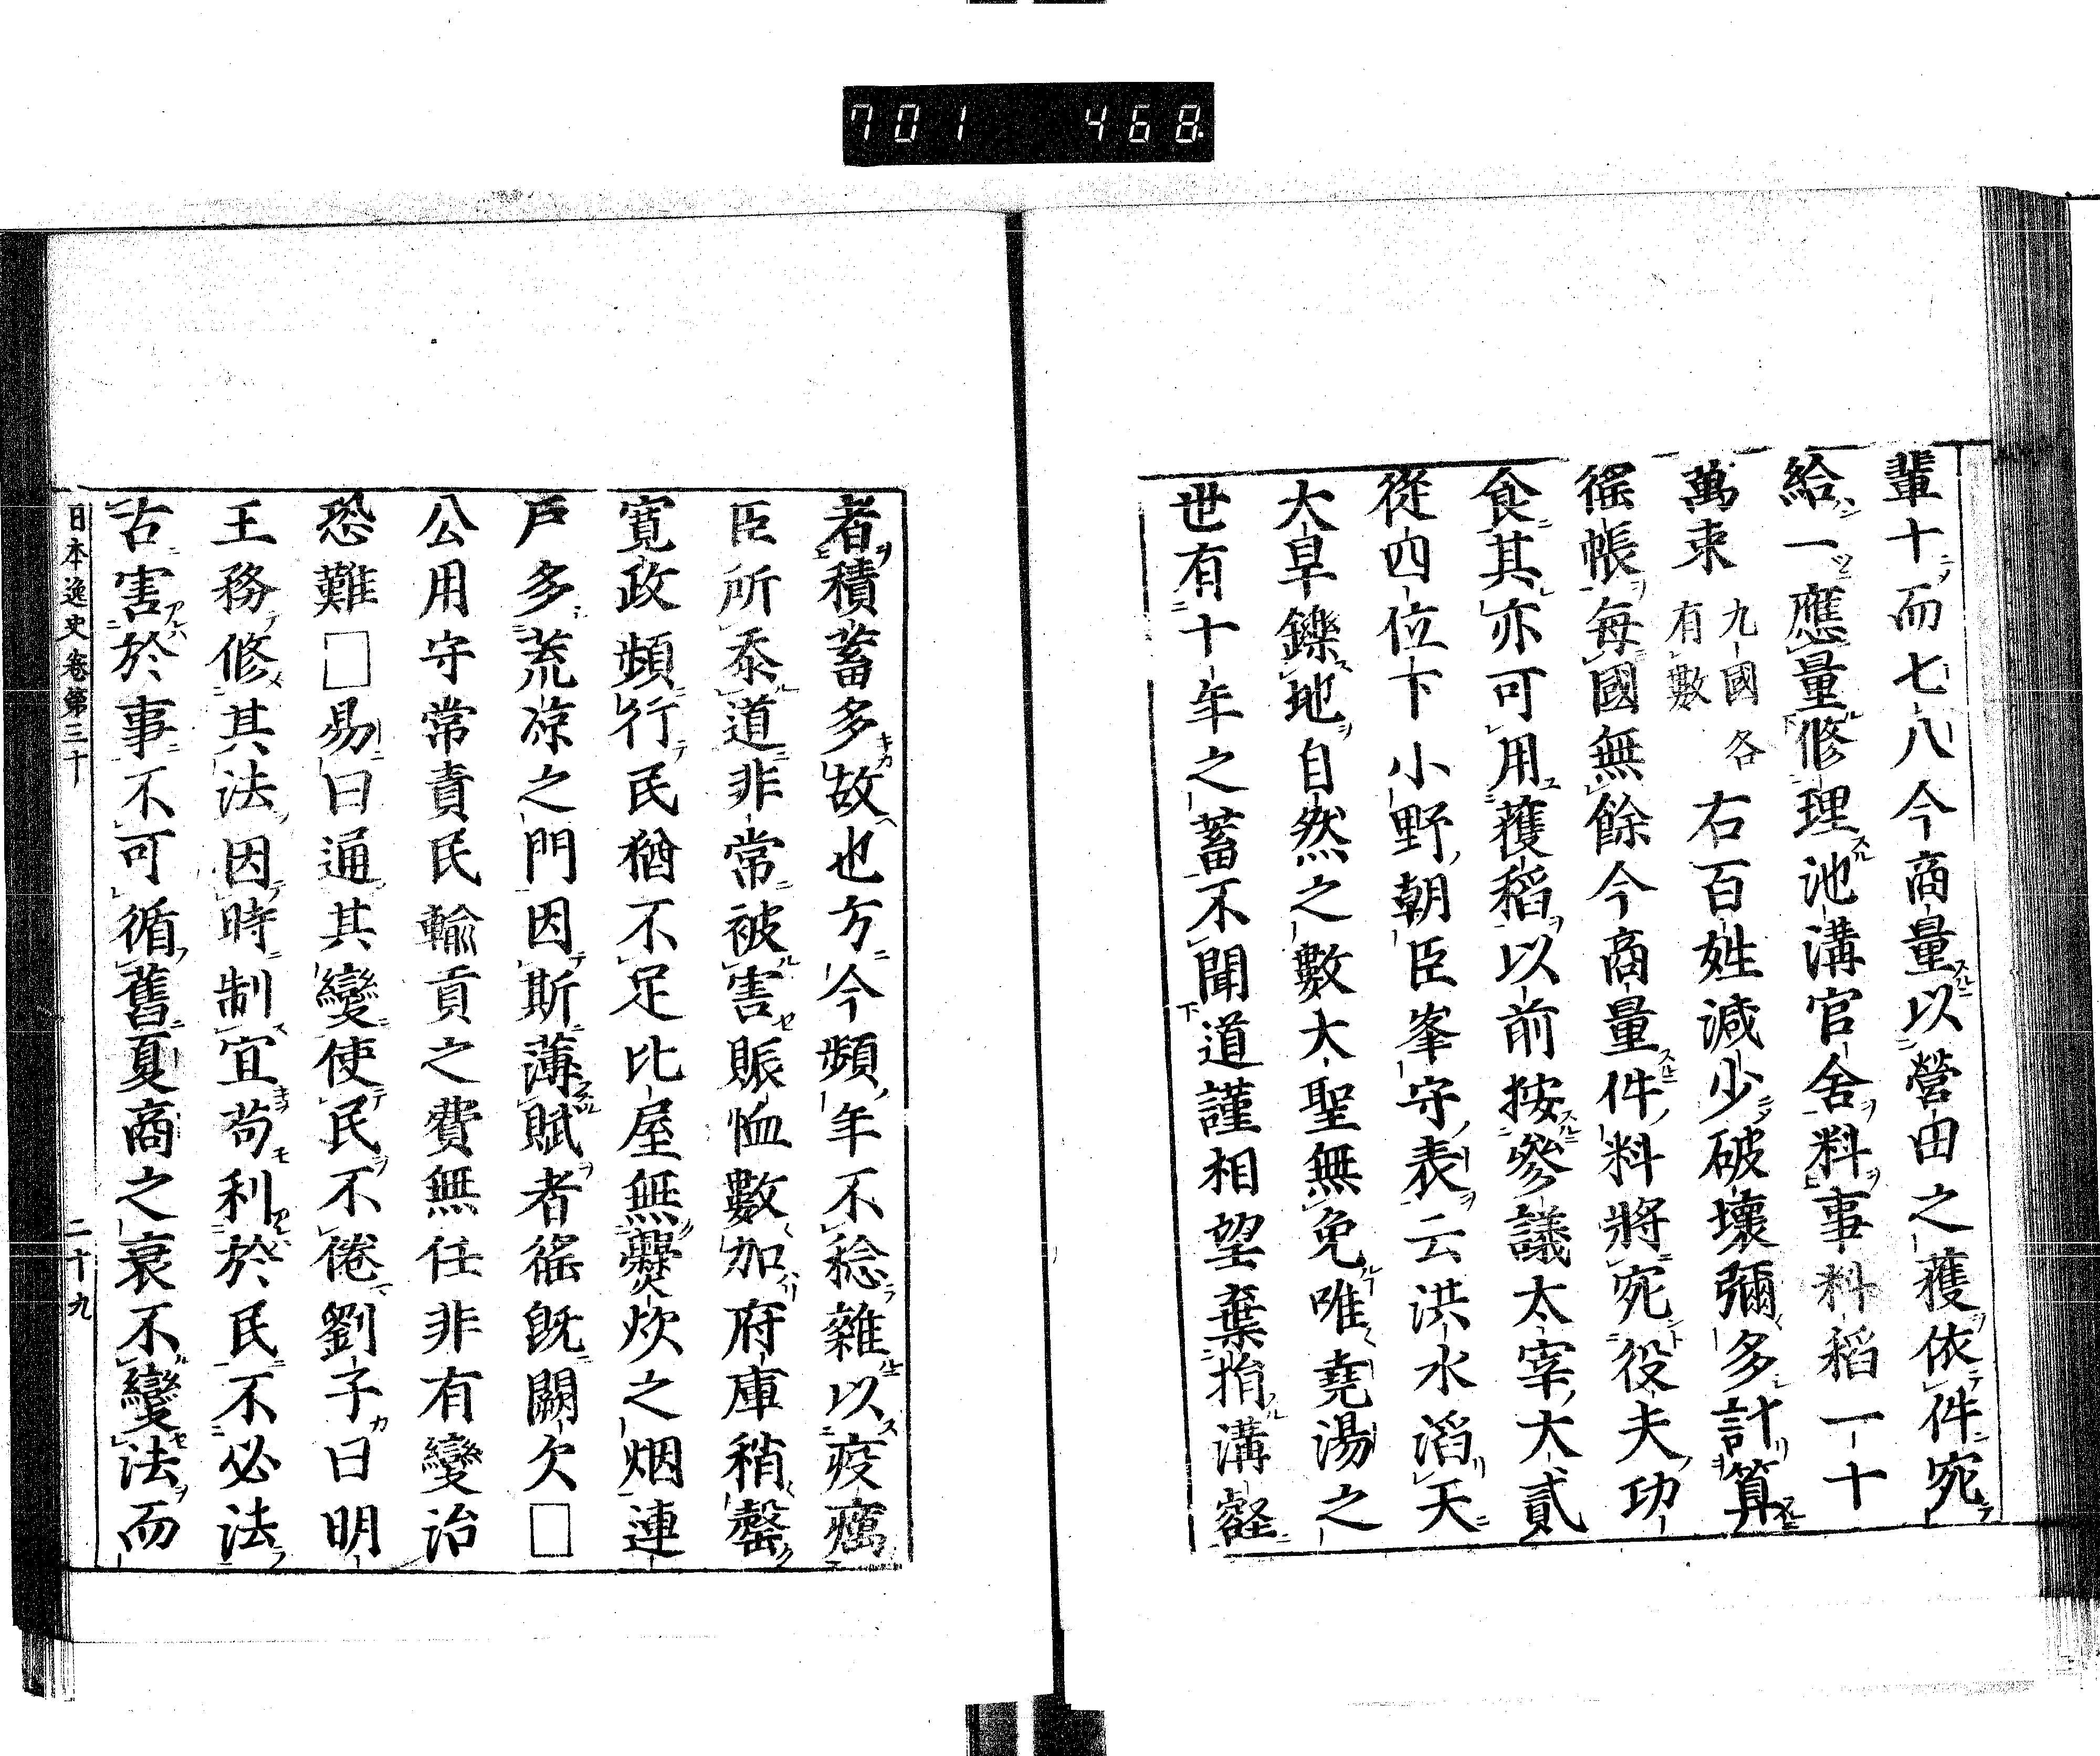 701 468
輩十而七八今商量以營田之穫依件宛
給一應量修理池溝官舍料事料稻一十
萬束九國各有數右百姓減少破壞彌多計算
徭帳每國無餘今商量件料將宛役夫功
食其亦可用穫稻以前按參議太宰大貳
從四位下小野朝臣峯守表云洪水滔天
大旱鑠地自然之數大聖無免唯堯湯之
世有十年之蓄不聞道謹相望棄捐溝壑
者積蓄多故也方今頻年不稔雜以疫癘
臣所忝道非常被害賑恤數加府庫稍罄
寛政頻行民猶不足比屋無爨炊之烟連
戶多荒凉之門因斯薄賦者徭既闕欠□
公用守常責民輸貢之費無任非有變治
恐難□易曰通其變使民不倦劉子曰明
王務修其法因時制宜苟利於民不必法
古害於事不可循舊夏商之衰不變法而
日本逸史卷第三十 二十九